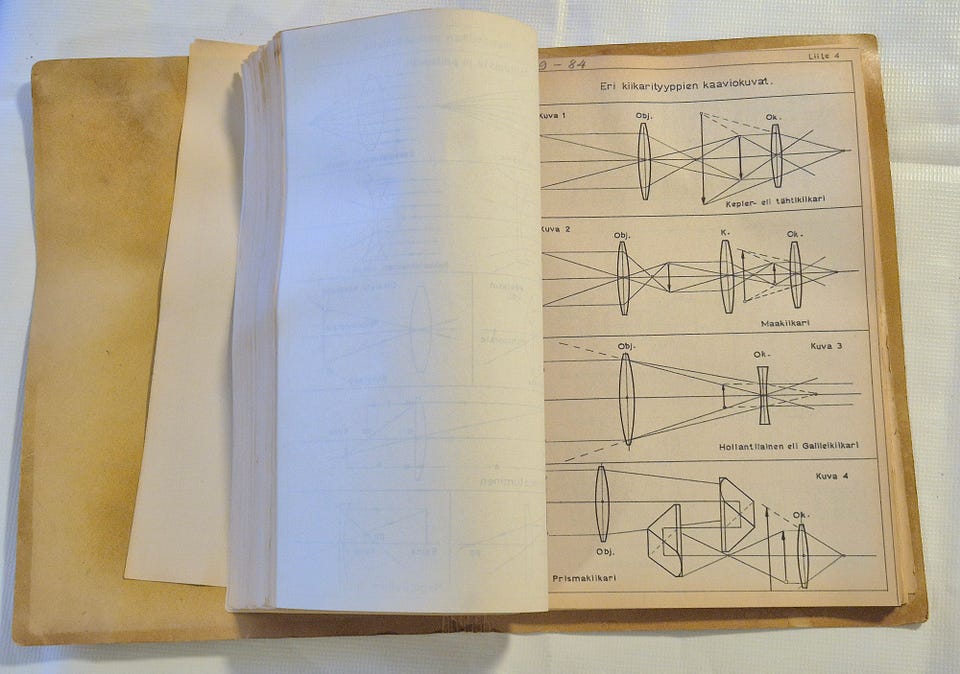 9 - 84
Liite 4
Eri kiikarityyppien kaaviokuvat.
Kuva 1
Obj.
Ok.
Kepler- eli tähtikiikari
Kuva 2
Obj.
K.
Ok.
Maakiikari
Obj.
Ok.
Kuva 3
Hollantilainen eli Galileikiikari
Kuva 4
Obj.
Ok.
Prismakiikari